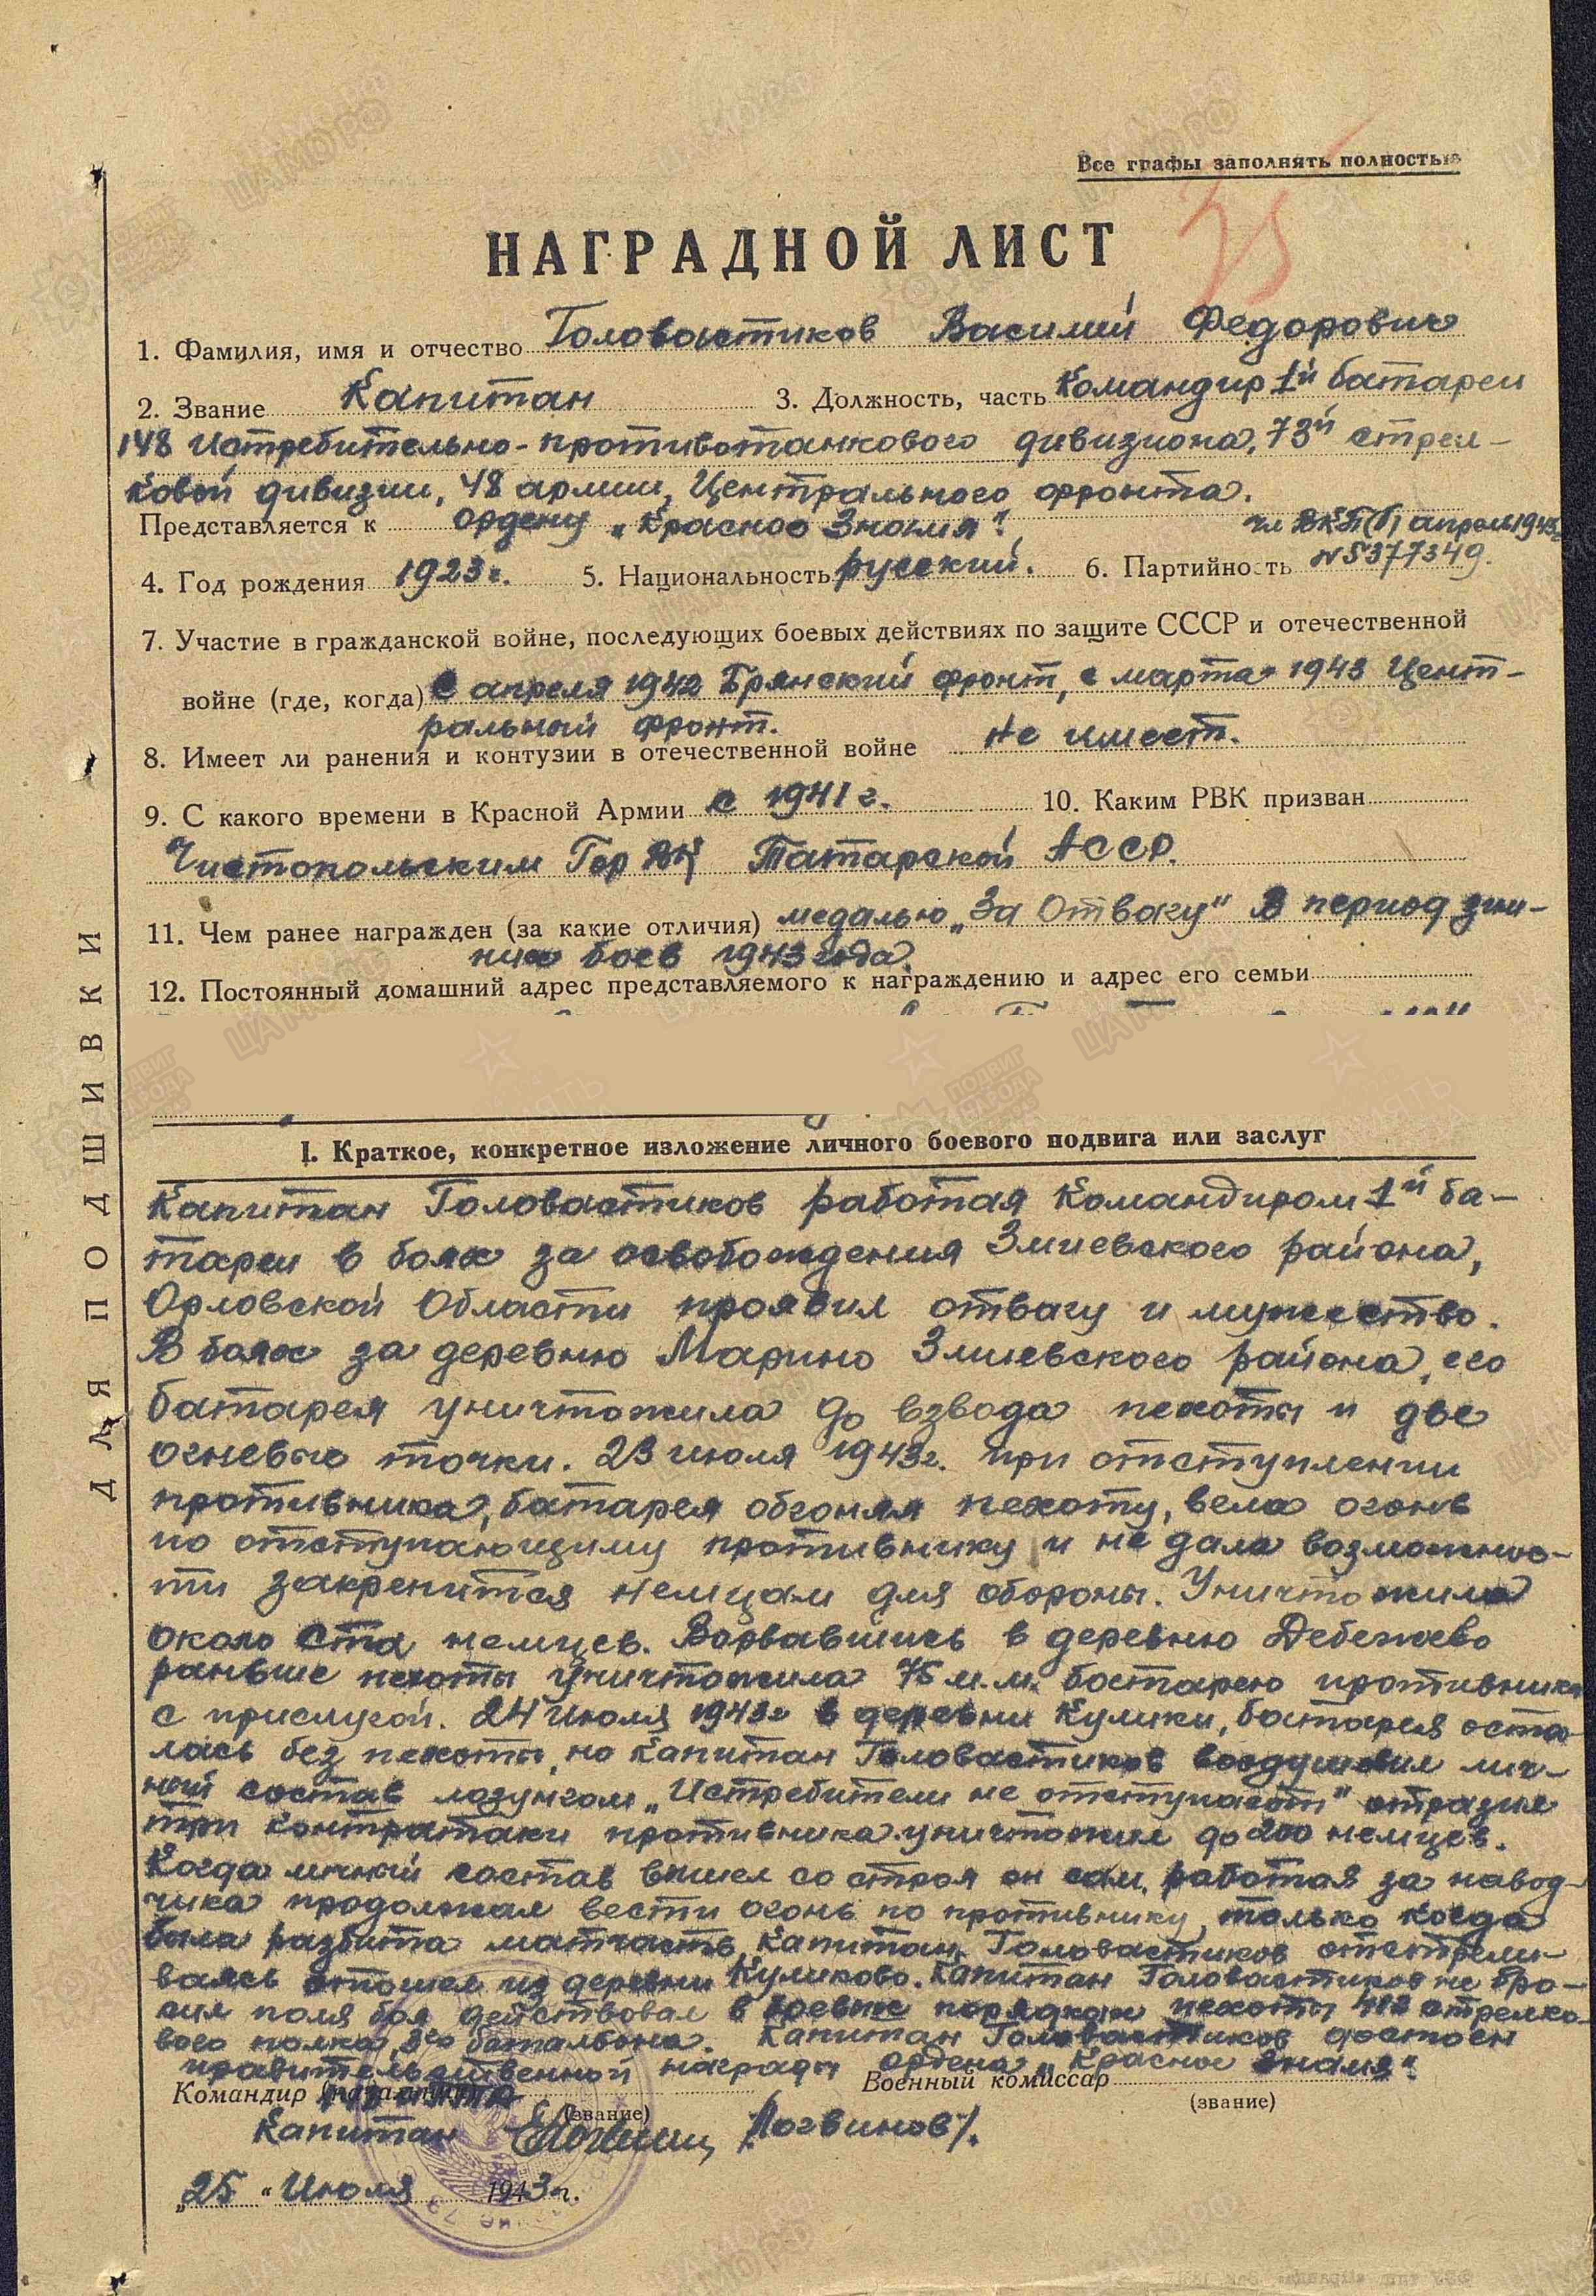 Все графы заполнять полностью
35
НАГРАДНОЙ ЛИСТ
1. Фамилия, имя и отчество Головастиков Василий Федорович
2. Звание Капитан 3. Должность, часть Командир 1й батареи
148 Истребительно-противотанкового дивизиона, 73й стрел-
ковой дивизии, 48 армии, Центрального фронта.
Представляется к ордену „Красное Знамя".
чл ВКП(б) апрель 1943г
4. Год рождения 1923г. 5. Национальность русский. 6. Партийность №5377349.
7. Участие в гражданской войне, последующих боевых действиях по защите СССР и отечественной
войне (где, когда) С апреля 1942 Брянский фронт, с марта 1943 Цент-
ральный фронт.
8. Имеет ли ранения и контузии в отечественной войне Не имеет.
9. С какого времени в Красной Армии с 1941 г. 10. Каким РВК призван
Чистопольским Гор ВК Татарской АССР.
11. Чем ранее награжден (за какие отличия) медалью „За Отвагу" в период зим-
них боев 1943 года.
12. Постоянный домашний адрес представляемого к награждению и адрес его семьи
I. Краткое, конкретное изложение личного боевого подвига или заслуг
Капитан Головастиков работая Командиром 1й ба-
тареи в боях за освобождения Змиевского района,
Орловской Области проявил отвагу и мужество.
В боях за деревню Марино Змиевского района, его
батарея уничтожила до взвода пехоты и две
огневых точки. 23 июля 1943г. при отступлении
противника, батарея обгоняя пехоту, вела огонь
по отступающиму противнику и не дала возможнос-
ти закрепится немцам для обороны. Уничтожила
около ста немцев. Ворвавшись в деревню Дебежево
раньше пехоты уничтожила 75 м.м. батарею противника
с прислугой. 24 июля 1943г в деревни Кулики, батарея оста-
лась без пехоты, но Капитан Головастиков воодушевил лич-
ный состав лозунгом „Истребители не отступают" отразил
три контратаки противника уничтожил до 200 немцев.
Когда личный состав вышел со строя он сам, работая за навод-
чика продолжал вести огонь по противнику, только когда
была разбита матчасть, Капитан Головастиков отстрели-
ваясь отошел из деревни Куликово. Капитан Головастиков не бро-
сил поля боя действовал в боевых порядках пехоты 412 стрелко-
вого полка, 3го баталбона. Капитан Головастиков достоен
правительственной награды ордена „Красное Знамя".
Командир Военный комиссар
(звание) (звание)
Капитан /Логвинов/.
„25" Июля 1943г.
ДЛЯ ПОДШИВКИ